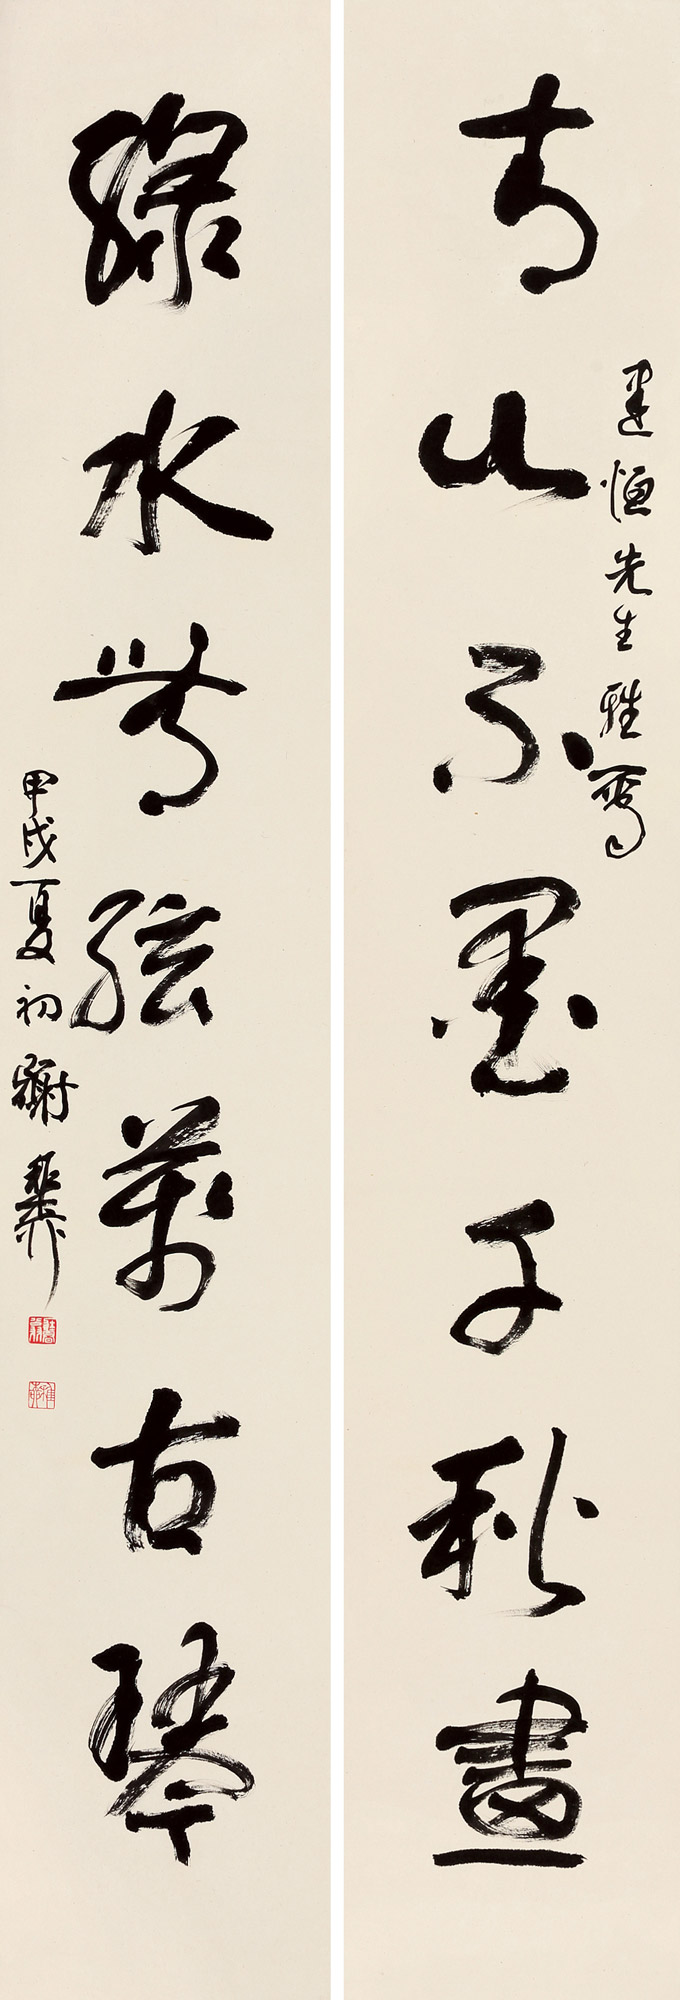 青山不墨千秋畫
建恒先生雅屬
綠水無弦萬古琴
甲戌夏初謝雲